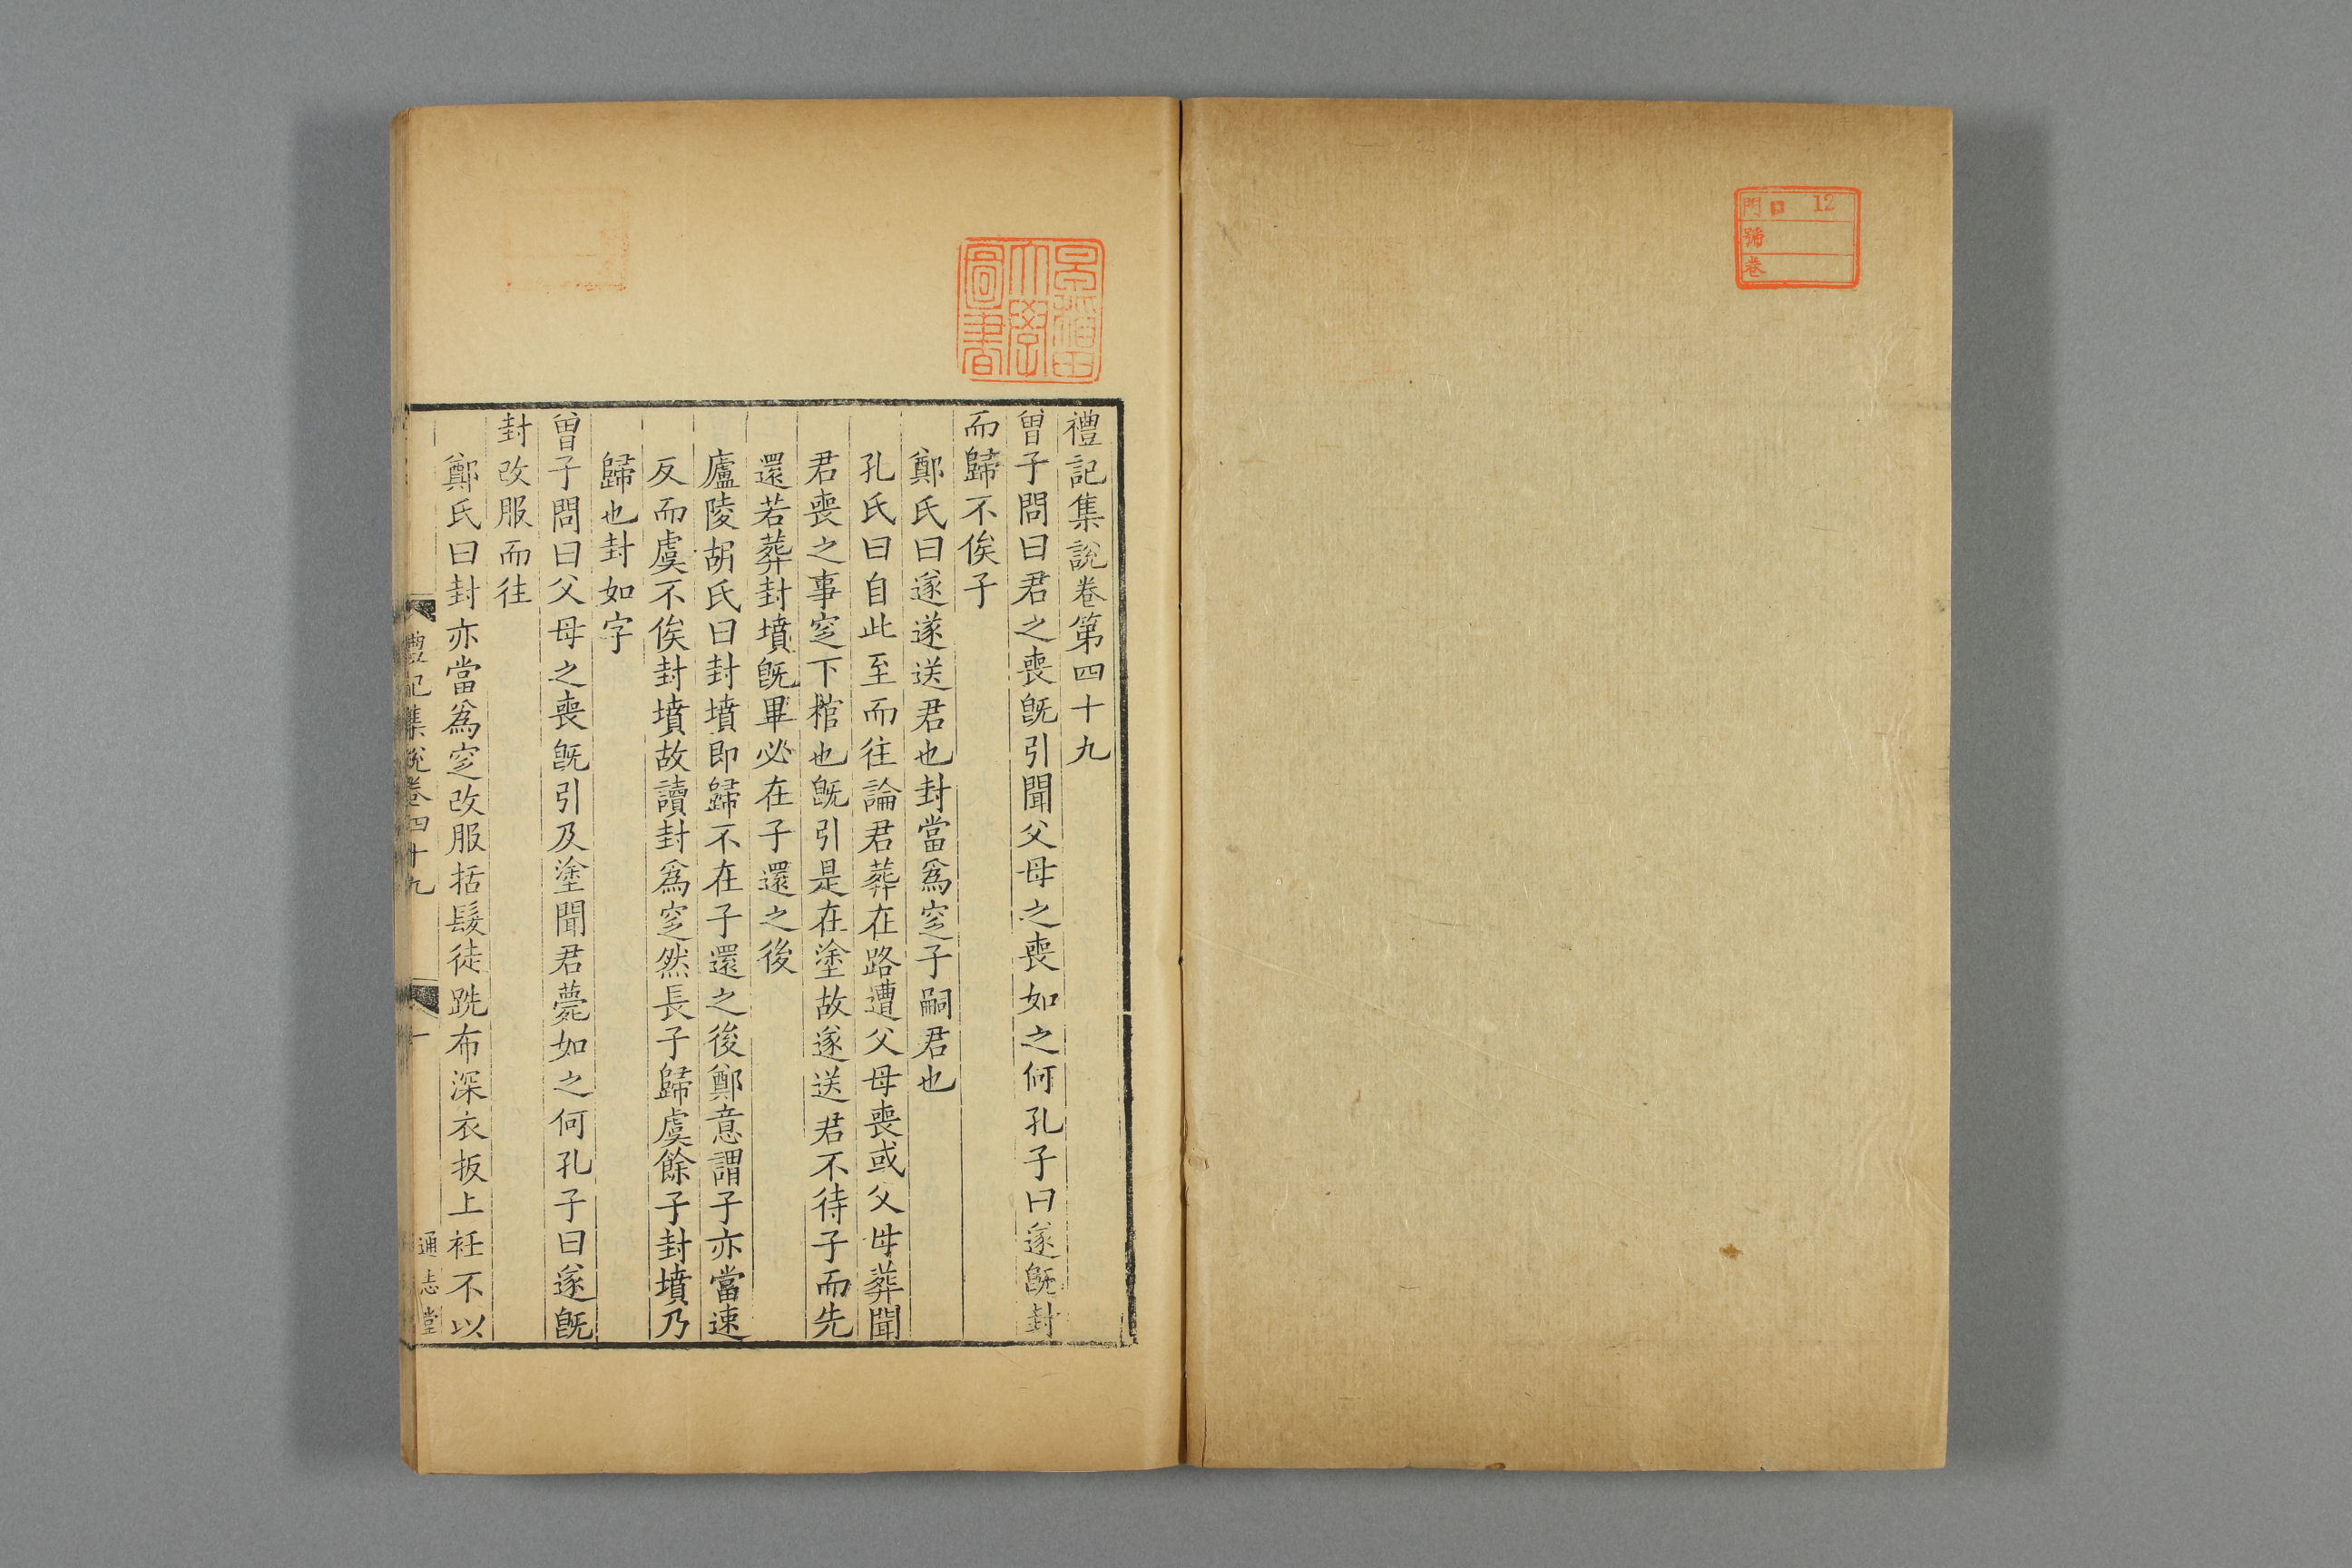 門 ロ 12
號
卷
早稲田
大學
圖書
禮記集說卷第四十九
曾子問曰君之喪旣引聞父母之喪如之何孔子曰遂旣封
而歸不俟子
鄭氏曰遂遂送君也封當爲窆子嗣君也
孔氏曰自此至而往論君葬在路遭父母喪或父母葬聞
君喪之事窆下棺也旣引是在塗故遂送君不待子而先
還若葬封墳旣畢必在子還之後
廬陵胡氏曰封墳即歸不在子還之後鄭意謂子亦當速
反而虞不俟封墳故讀封爲窆然長子歸虞餘子封墳乃
歸也封如字
曾子問曰父母之喪旣引及塗聞君薨如之何孔子曰遂旣
封改服而往
鄭氏曰封亦當爲窆改服括髮徒跣布深衣扱上衽不以
禮記集說卷四十九 一 通志堂